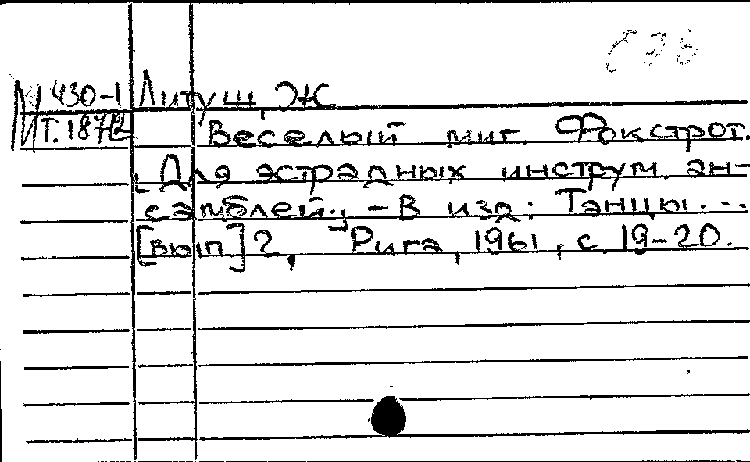 М 430-1 Литуш, Ж
Т. 1872 Веселый миг. Фокстрот.
[Для эстрадных инструм. ан-
самблей.] - В изд: Танцы...
[вып] 2, Рига, 1961, с. 19-20.